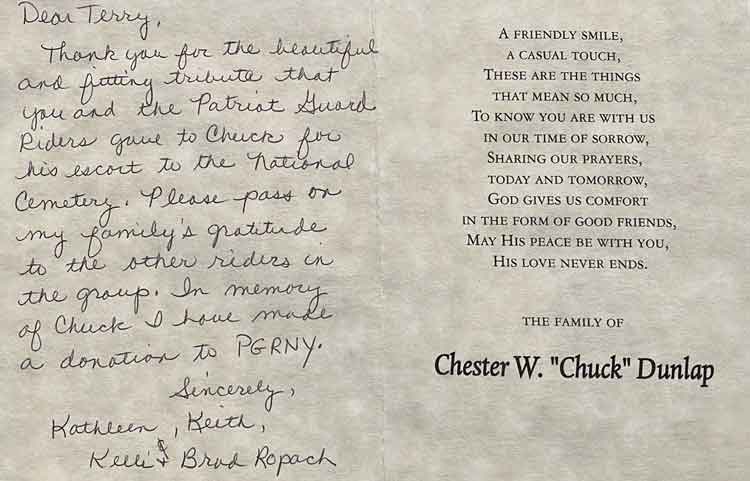 Dear Terry,
Thank you for the beautiful
and fitting tribute that
you and the Patriot Guard
Riders gave to Chuck for
his escort to the National
Cemetery. Please pass on
my family's gratitude
to the other riders in
the group. In memory
of Chuck I have made
a donation to PGRNY.
Sincerely,
Kathleen, Keith,
Kelli & Brad Ropach
A FRIENDLY SMILE,
A CASUAL TOUCH,
THESE ARE THE THINGS
THAT MEAN SO MUCH,
TO KNOW YOU ARE WITH US
IN OUR TIME OF SORROW,
SHARING OUR PRAYERS,
TODAY AND TOMORROW,
GOD GIVES US COMFORT
IN THE FORM OF GOOD FRIENDS,
MAY HIS PEACE BE WITH YOU,
HIS LOVE NEVER ENDS.
THE FAMILY OF
Chester W. "Chuck" Dunlap